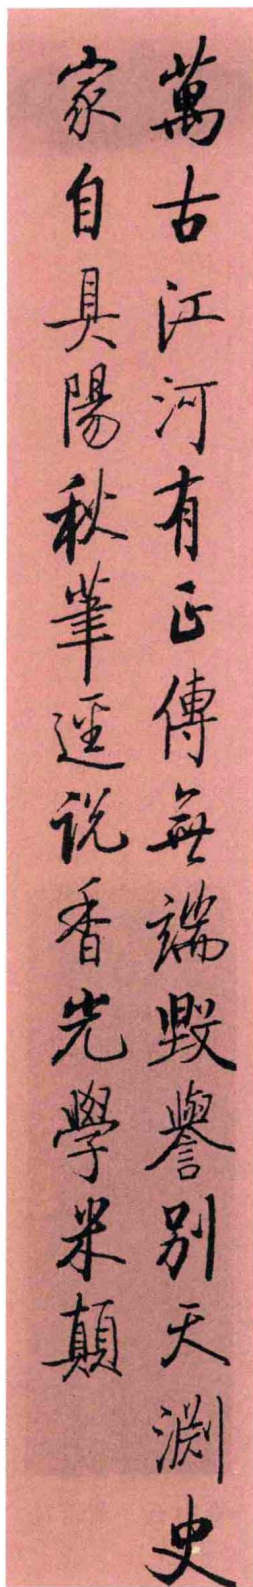 萬古江河有正傳無端毀譽別天淵史
家自具陽秋筆逕説香光學米顛